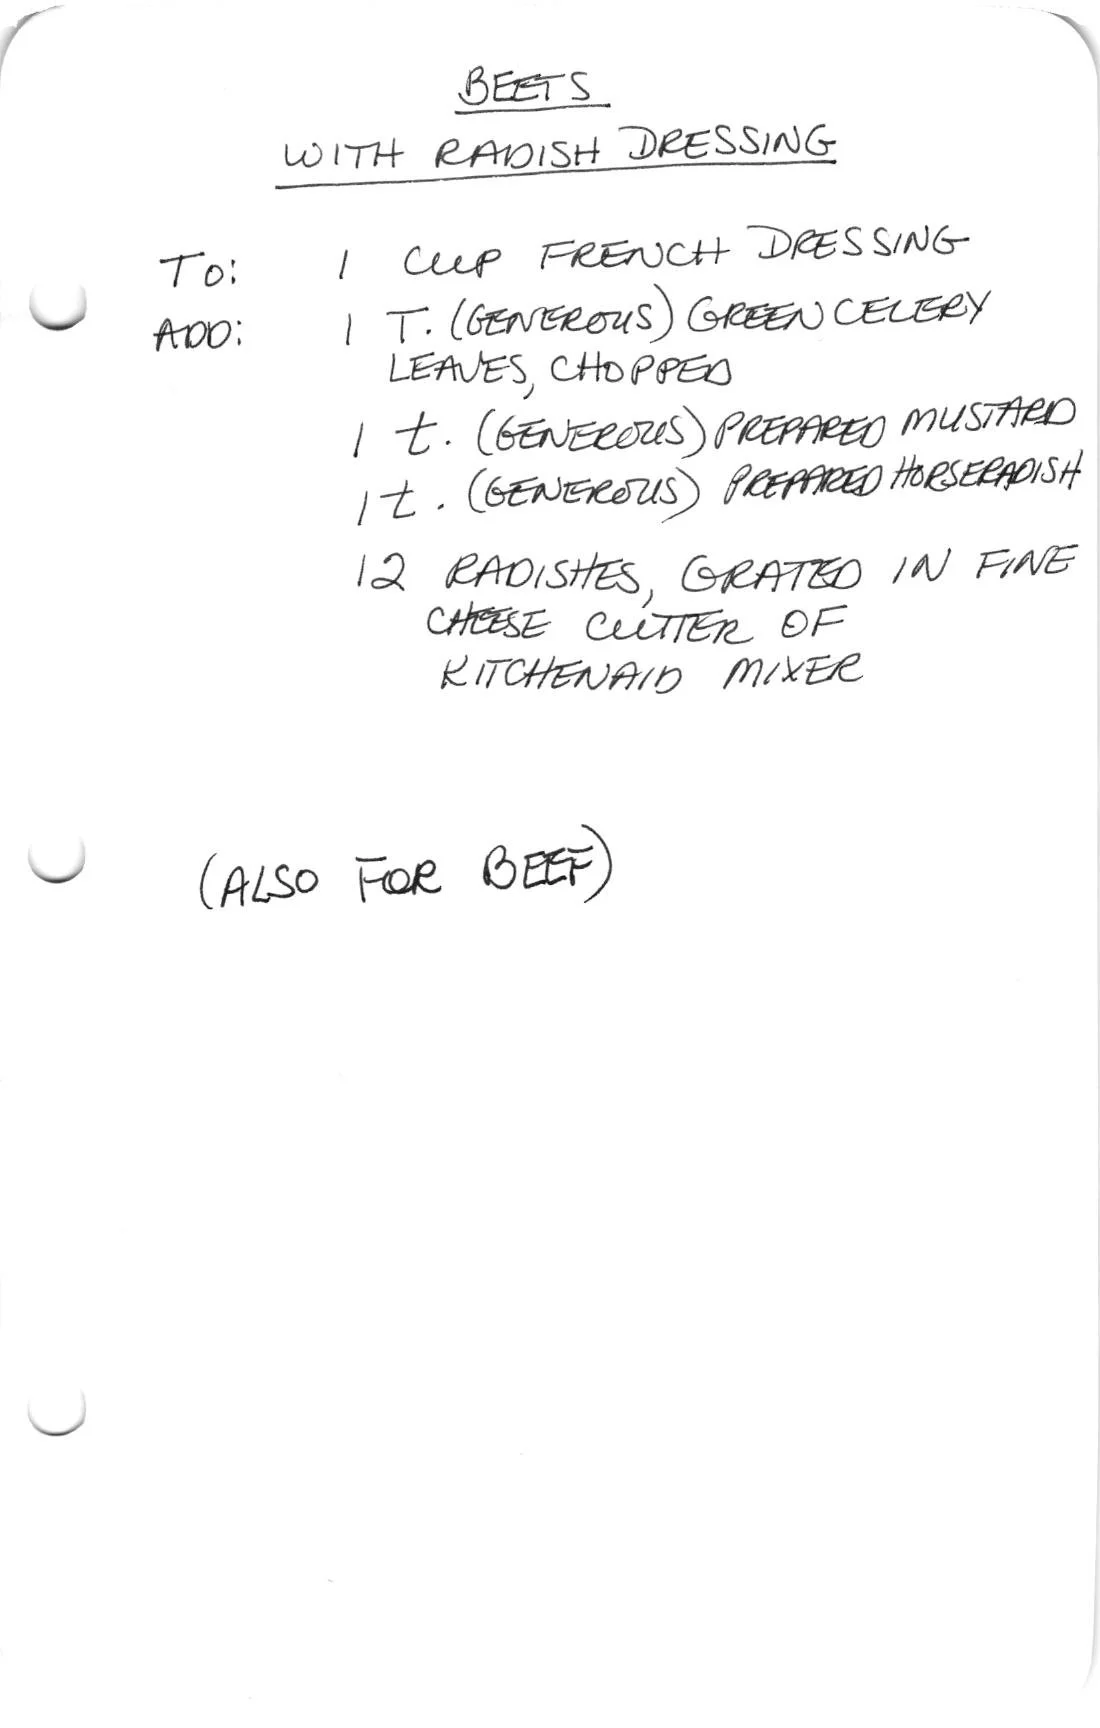 BEETS
WITH RADISH DRESSING
TO: 1 CUP FRENCH DRESSING
ADD: 1 T. (GENEROUS) GREEN CELERY
LEAVES, CHOPPED
1 t. (GENEROUS) PREPARED MUSTARD
1 t. (GENEROUS) PREPARED HORSERADISH
12 RADISHES, GRATED IN FINE
CHEESE CUTTER OF
KITCHENAID MIXER
(ALSO FOR BEEF)